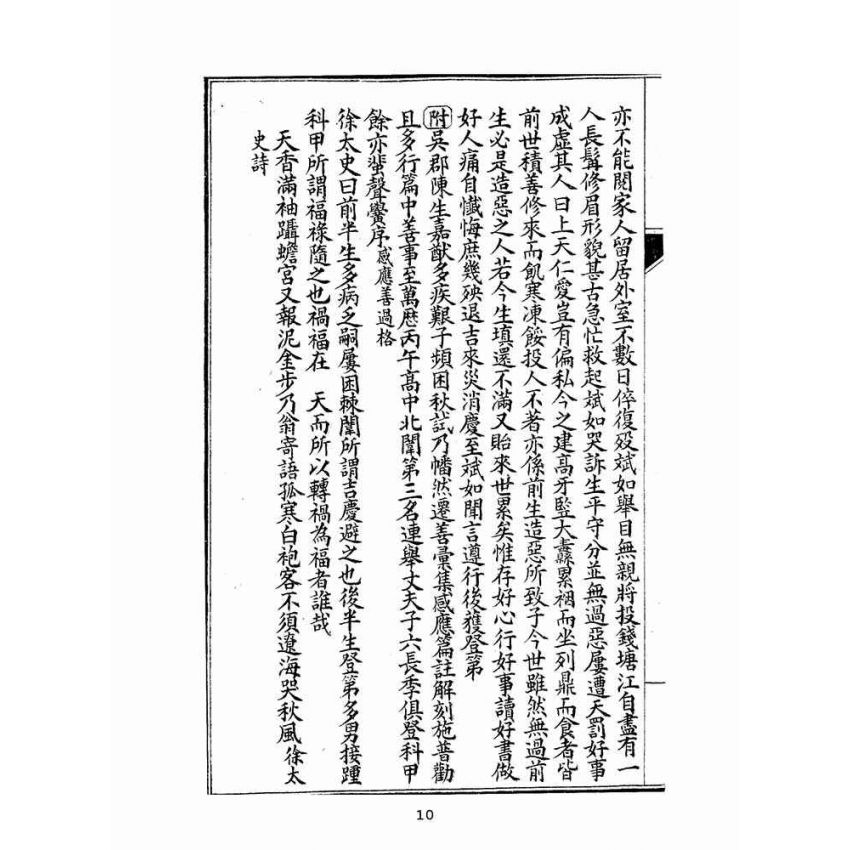 亦不能閱家人留居外室不數日倅復歿斌如舉目無親將投錢塘江自盡有一
人長髯修眉形貌甚古急忙救起斌如哭訴生平守分並無過惡屢遭天罰好事
成虛其人曰上天仁愛豈有偏私今之建高牙豎大纛累裀而坐列鼎而食者皆
前世積善修來而飢寒凍餒投人不著亦係前生造惡所致子今世雖然無過前
生必是造惡之人若今生填還不滿又貽來世累矣惟存好心行好事讀好書做
好人痛自懺悔庶幾殃退吉來災消慶至斌如聞言遵行後獲登第
附吳郡陳生嘉猷多疾艱子頻困秋試乃幡然遷善彙集感應篇註解刻施普勸
且多行篇中善事至萬厯丙午高中北闈第三名連舉丈夫子六長季俱登科甲
餘亦蜚聲黌序感應善過格
徐太史曰前半生多病乏嗣屢困棘闈所謂吉慶避之也後半生登第多男接踵
科甲所謂福祿隨之也禍福在 天而所以轉禍為福者誰哉
天香滿袖躡蟾宮又報泥金步乃翁寄語孤寒白袍客不須遼海哭秋風徐太
史詩
10